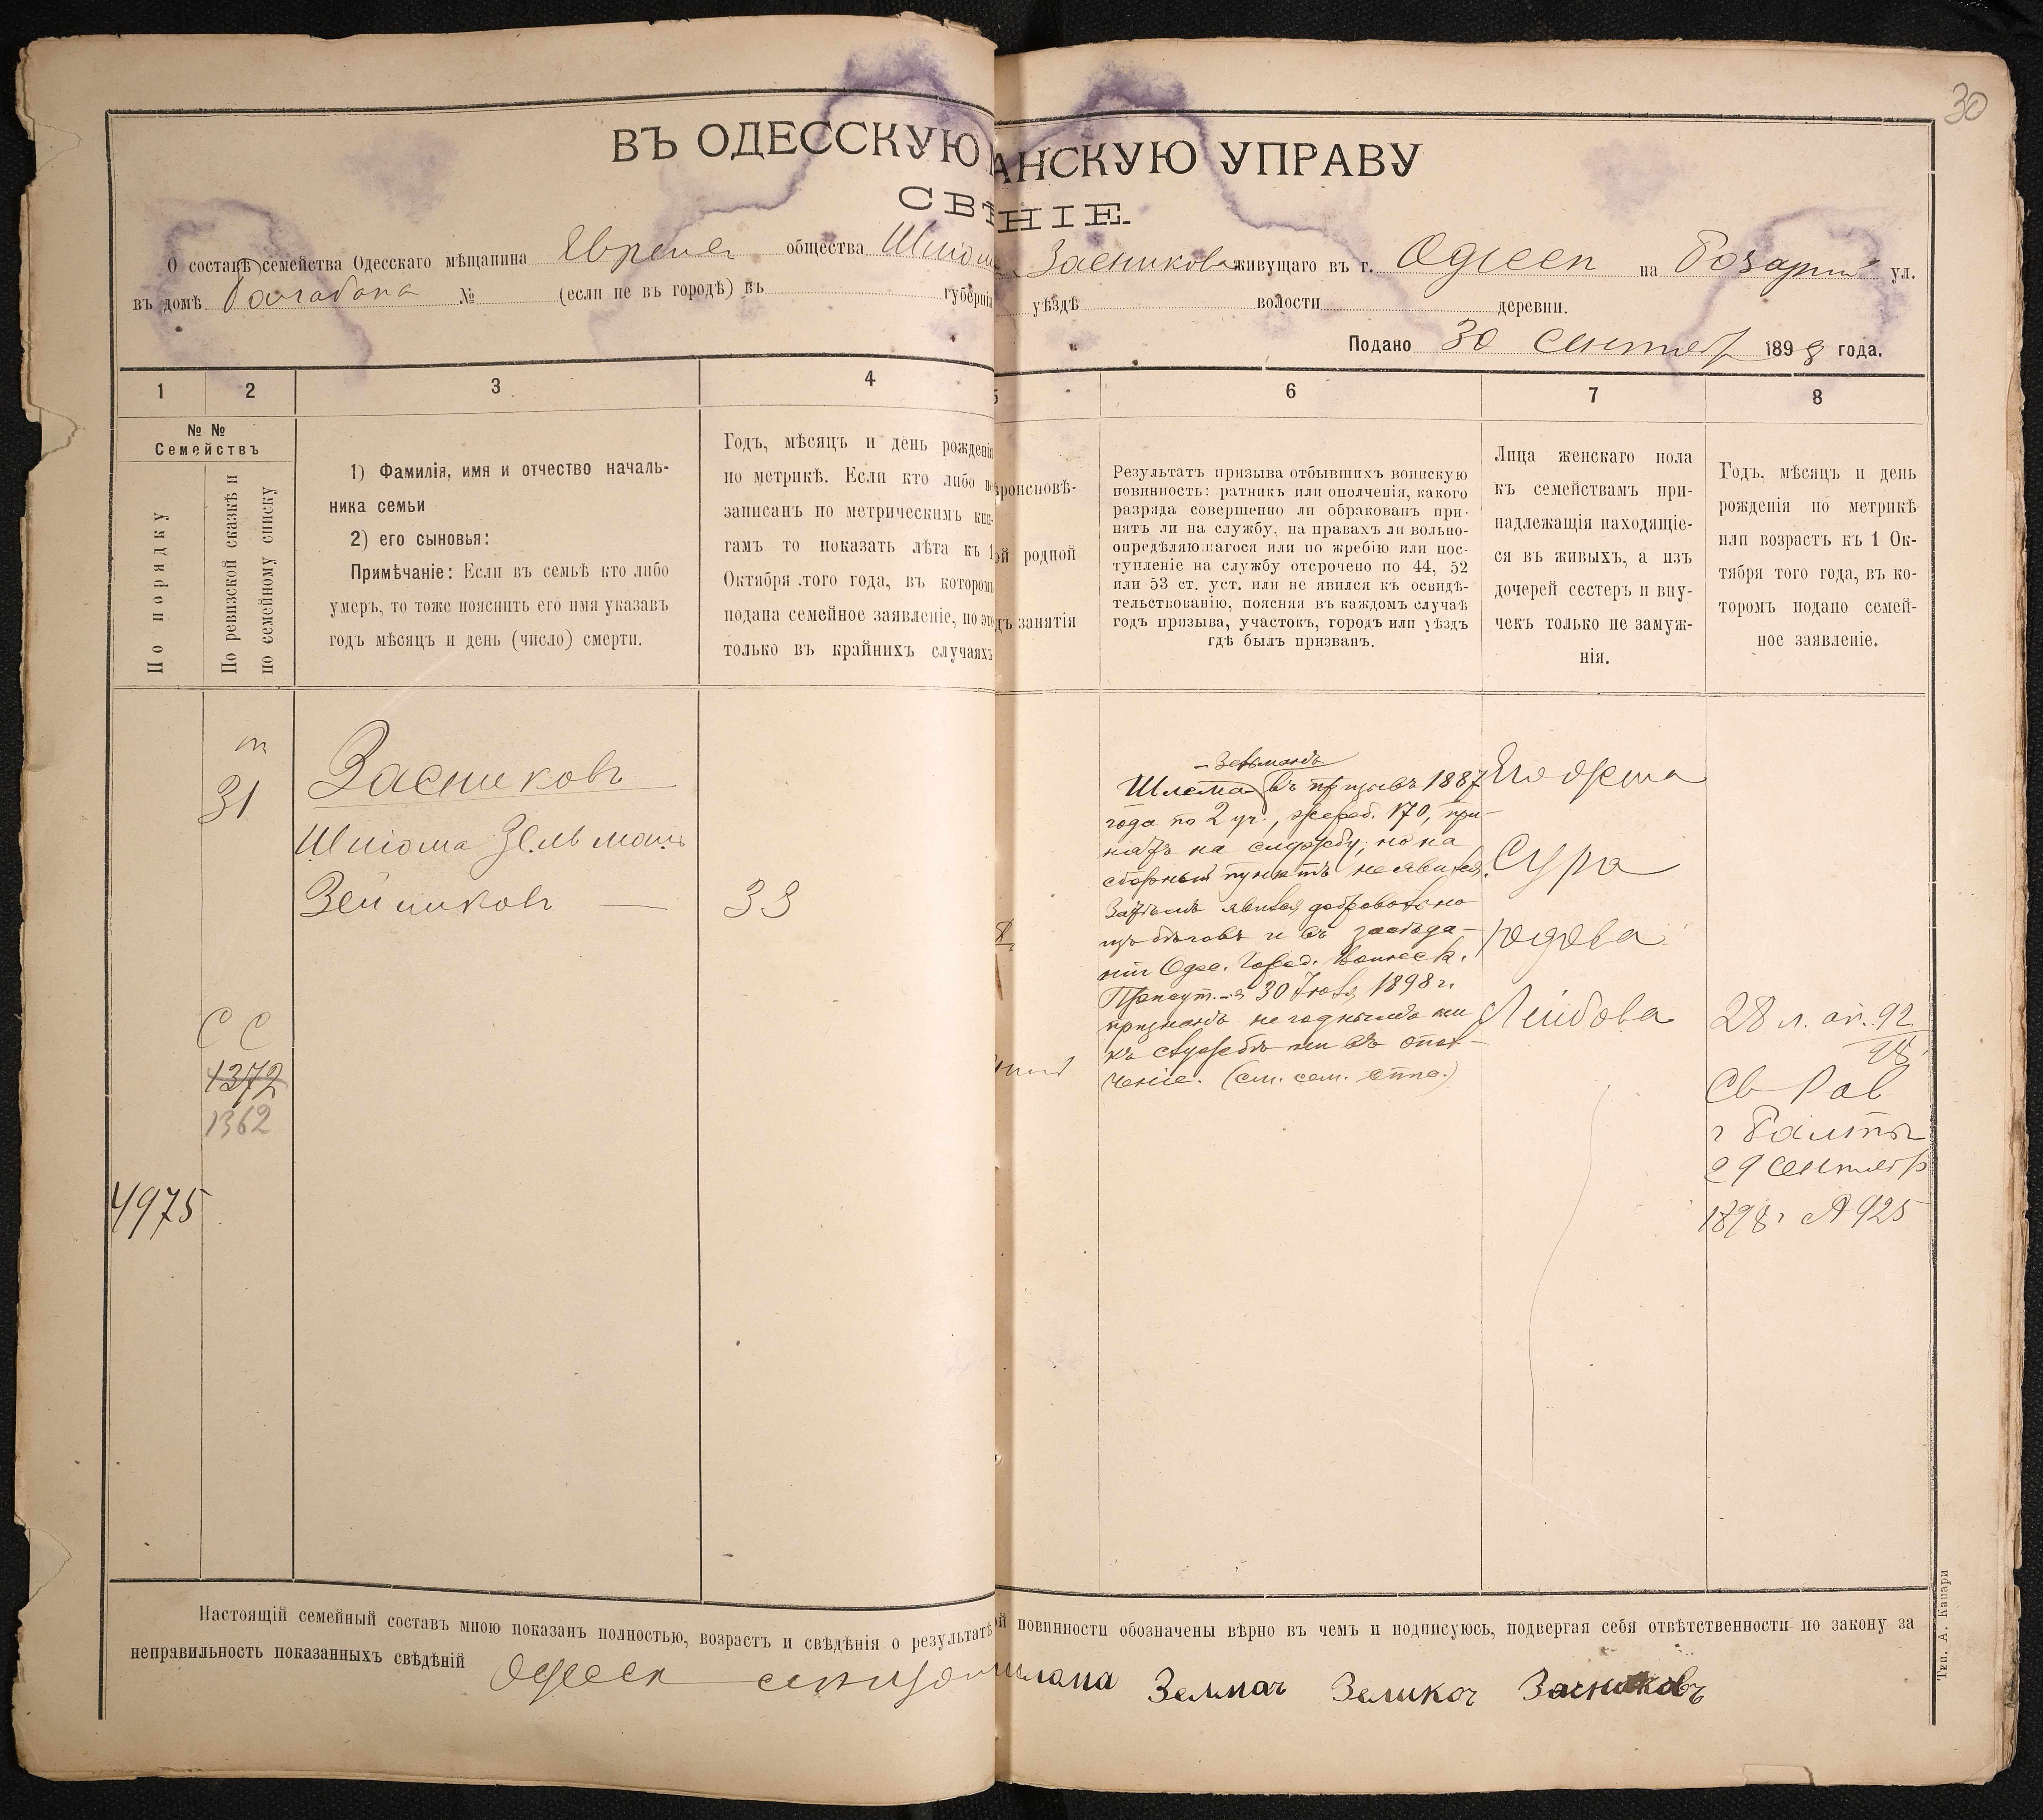 30
ВЪ ОДЕССКУЮ АНСКУЮ УПРАВУ
СВѢ НІЕ.
О составѣ семейства Одесскаго мѣщанина Еврея общества Шліома Засниковъ живущаго въ г. Одессѣ на Базарной ул.
въ домѣ № (если не въ городѣ) въ губерніи уѣздѣ волости деревни.
Подано 30 Сентяб 1898 года.
1 2 3 4 5 6 7 8
№ №
Семействъ
По порядку
По ревизской сказкѣ и
по семейному списку
1) Фамилія, имя и отчество началь-
ника семьи
2) его сыновья:
Примѣчаніе: Если въ семьѣ кто либо
умеръ, то тоже пояснить его имя указавъ
годъ мѣсяцъ и день (число) смерти.
Годъ, мѣсяцъ и день рожденія
по метрикѣ. Если кто либо не
записанъ по метрическимъ кни-
гамъ то показать лѣта къ 1
Октября того года, въ которомъ
подана семейное заявленіе, но это
только въ крайнихъ случаяхъ
ѣроисповѣ-
ой родной
дъ занятія
Результатъ призыва отбывшихъ воинскую
повинность: ратникъ или ополченія, какого
разряда совершенно ли обракованъ при-
нятъ ли на службу, на правахъ ли вольно-
опредѣляющагося или по жребію или пос-
тупленіе на службу отсрочено по 44, 52
или 53 ст. уст. или не явился къ освидѣ-
тельствованію, поясняя въ каждомъ случаѣ
годъ призыва, участокъ, городъ или уѣздъ
гдѣ былъ призванъ.
Лица женскаго пола
къ семействамъ при-
надлежащія находящіе-
ся въ живыхъ, а изъ
дочерей сестеръ и вну-
чекъ только не замуж-
нія.
Годъ, мѣсяцъ и день
рожденія по метрикѣ
или возрастъ къ 1 Ок-
тября того года, въ ко-
торомъ подано семей-
ное заявленіе.
31
Засниковъ
Шліома Зельманъ
Зейликовъ — 33
С С
1372
1362
4975
Зельманъ
Шлема въ призывъ 1887
года по 2 уч., жереб. 170, при-
нятъ на службу, но на
сборный пунктъ не явился.
Затѣмъ явился добровольно
изъ бѣговъ и въ засѣда-
ніи Одес. Город. Воинск.
Присут.-я 30 Іюля 1898 г.
признанъ негоднымъ ни
къ службѣ ни въ опол-
ченіе. (см. сем. спис.)
Его жена
Сура
Юдова
Лейбова
28 л. ап. 92
18
Св Рав
г Балты
29 Сентяб
1898 г № 925
Настоящій семейный составъ мною показанъ полностью, возрастъ и свѣдѣнія о результатѣ ой повинности обозначены вѣрно въ чемъ и подписуюсь, подвергая себя отвѣтственности по закону за
неправильность показанныхъ свѣдѣній Одесск Зелман Зелико Засниковъ
Тип. А. Капари